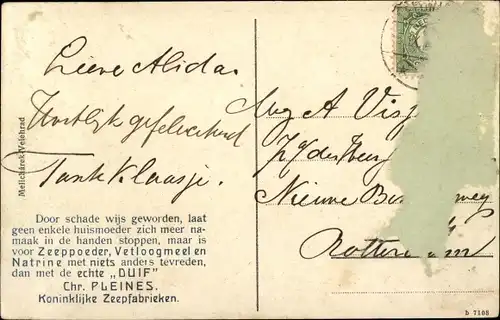 Lieve Alida.
Hartelijk gefeliciteerd
Tante Klaasje.
Door schade wijs geworden, laat
geen enkele huismoeder zich meer na-
maak in de handen stoppen, maar is
voor Zeeppoeder, Vetloogmeel en
Natrine met niets anders tevreden,
dan met de echte „DUIF"
Chr. PLEINES.
Koninklijke Zeepfabrieken.
Melichárek-Velehrad
A Vis
Nieuwe
Rotterdam
b 7108